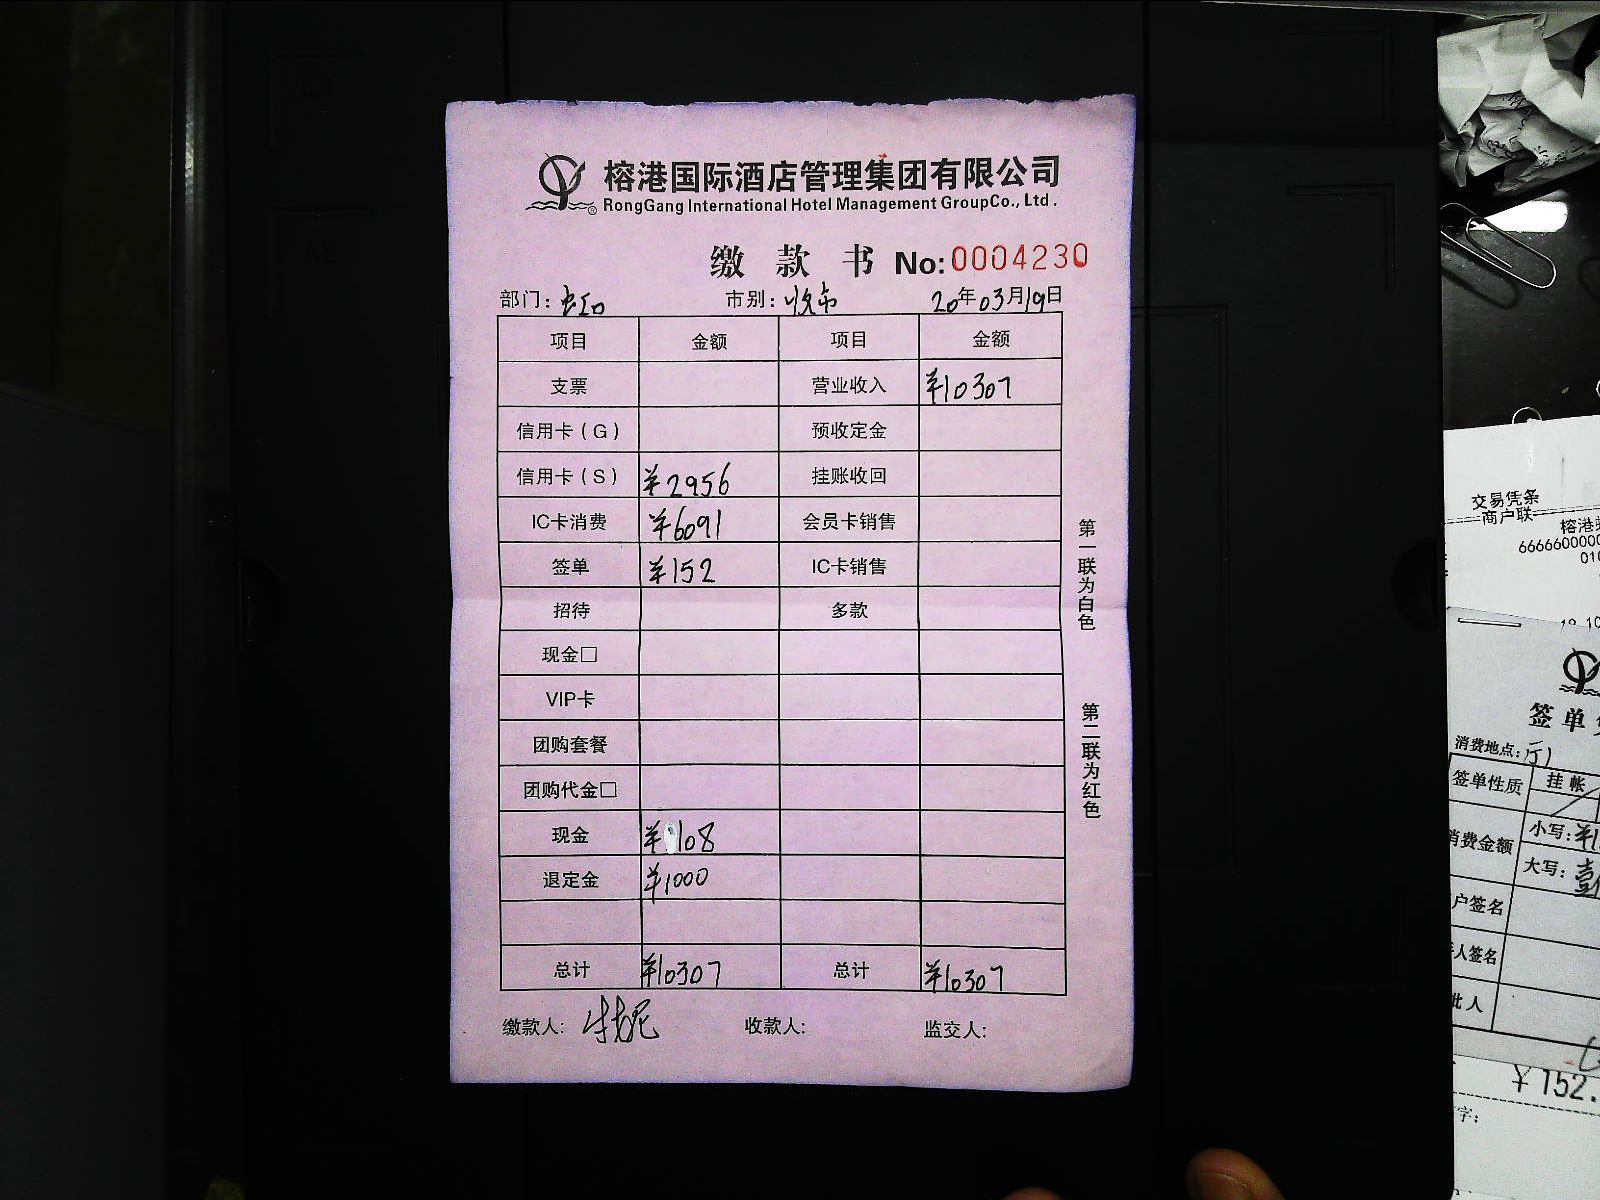 榕港国际酒店管理集团有限公司
®RongGang International Hotel Management GroupCo., Ltd.
缴款书 No:0004230
部门: 市别:收市 20年03月19日
项目 金额 项目 金额
支票 营业收入 ¥10307
信用卡(G) 预收定金
信用卡(S) ¥2956 挂账收回
IC卡消费 ¥6091 会员卡销售
签单 ¥152 IC卡销售
招待 多款
现金□
VIP卡
团购套餐
团购代金□
现金 ¥108
退定金 ¥1000
总计 ¥10307 总计 ¥10307
缴款人: 收款人: 监交人:
第一联为白色
第二联为红色
交易凭条
商户联
榕港
6666600000
签单
消费地点:
签单性质 挂帐
消费金额 小写:
大写:
户签名
人签名
批人
¥152.
字: